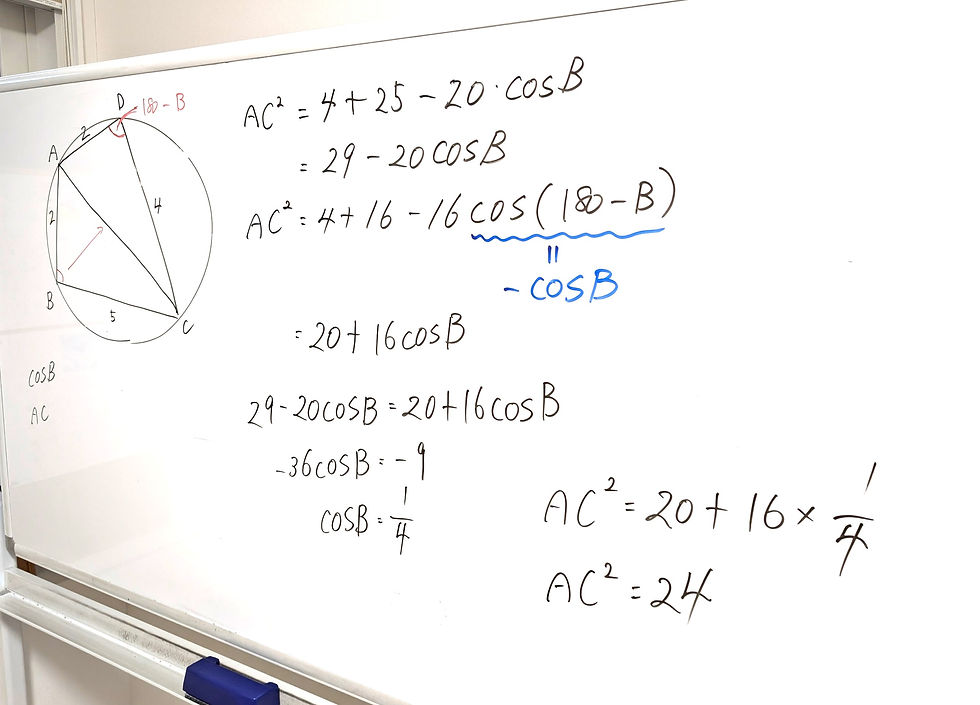 D
180 - B
2
A
2
4
B
5
C
cosB
AC
AC² = 4 + 25 - 20 · cosB
= 29 - 20cosB
AC² = 4 + 16 - 16 cos(180 - B)
=
- cosB
= 20 + 16cosB
29 - 20cosB = 20 + 16cosB
-36cosB = -9
cosB = 1/4
AC² = 20 + 16 × 1/4
AC² = 24